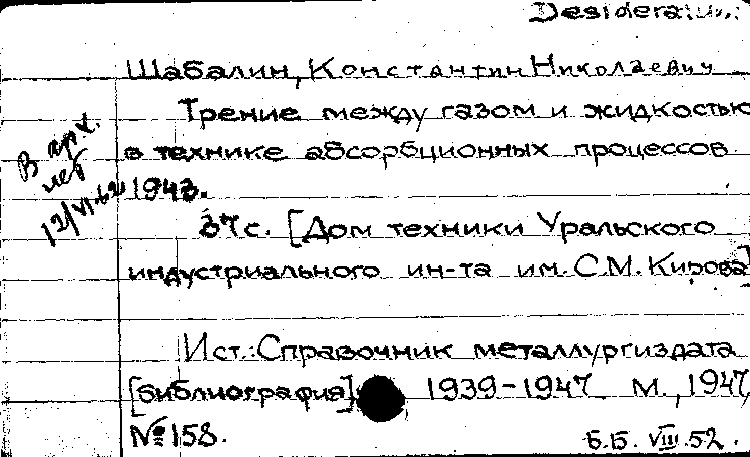 Desiderat
Шабалин, Константин Николаевич
Трение между газом и жидкостью
в технике абсорбционных процессов
1943.
37 с. [Дом техники Уральского
индустриального ин-та им. С.М. Кирова]
В арх.
нет
12/VI-62
Ист.: Справочник металлургиздата
[библиография] 1939-1947 М., 1947,
№ 158.
Б.Б. VIII.52.